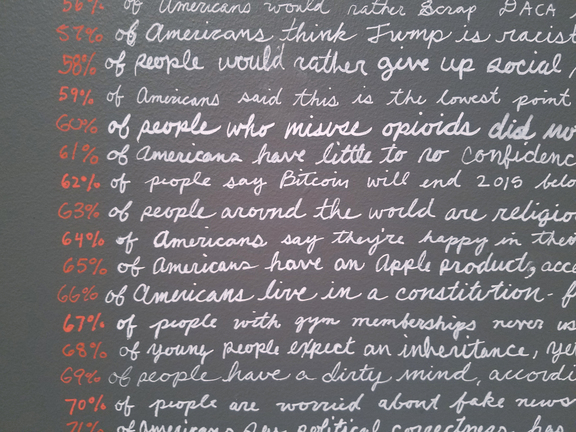 56% of Americans would rather scrap DACA
57% of Americans think Trump is racist
58% of people would rather give up social
59% of Americans said this is the lowest point
60% of people who misuse opioids did no
61% of Americans have little to no confidenc
62% of people say Bitcoin will end 2015 belo
63% of people around the world are religio
64% of Americans say they're happy in thei
65% of Americans have an Apple product, acco
66% of Americans live in a constitution-f
67% of people with gym memberships never us
68% of young people expect an inheritance, ye
69% of people have a dirty mind, accordi
70% of people are worried about fake news
71% of Americans say political correctness has